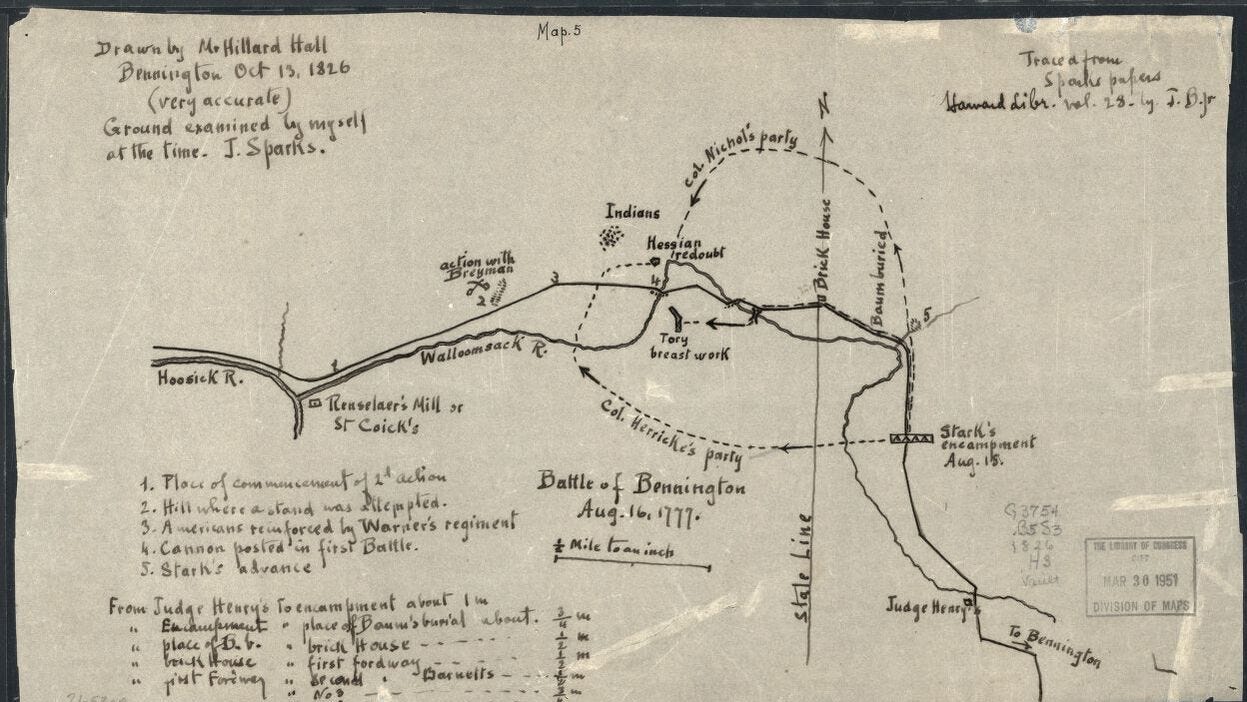 Map. 5
Drawn by Mr Hillard Hall
Bennington Oct 13, 1826
(very accurate)
Ground examined by myself
at the time. J. Sparks.
Traced from
Sparks papers
Harvard Libr. vol. 28- by J. B. Jr
N
Col. Nichol's party
Indians
Hessian
redoubt
action with
Breyman
2
3
4
Brick House
Baum buried
5
Tory
breast work
1
Walloomsack R.
Hoosick R.
Renselaer's Mill or
St Coick's
Col. Herricke's party
Stark's
encampment
Aug. 15.
1. Place of commencement of 2d action
2. Hill where a stand was attempted.
3. Americans reinforced by Warner's regiment
4. Cannon posted in first Battle.
5. Stark's advance
Battle of Bennington
Aug. 16, 1777.
½ Mile to an inch
State Line
G3754
.B5S3
1826
.H3
Vault
THE LIBRARY OF CONGRESS
MAR 30 1951
DIVISION OF MAPS
Judge Henry's
To Bennington
From Judge Henry's to encampment about 1 m
" Encampment " place of Baum's burial about. ¾ m
" place of B. b. " brick House - - - - ½ m
" brick House " first fordway - - - - ½ m
" first Fordway " second " Barnetts - - - m
" No 3 - - - - m